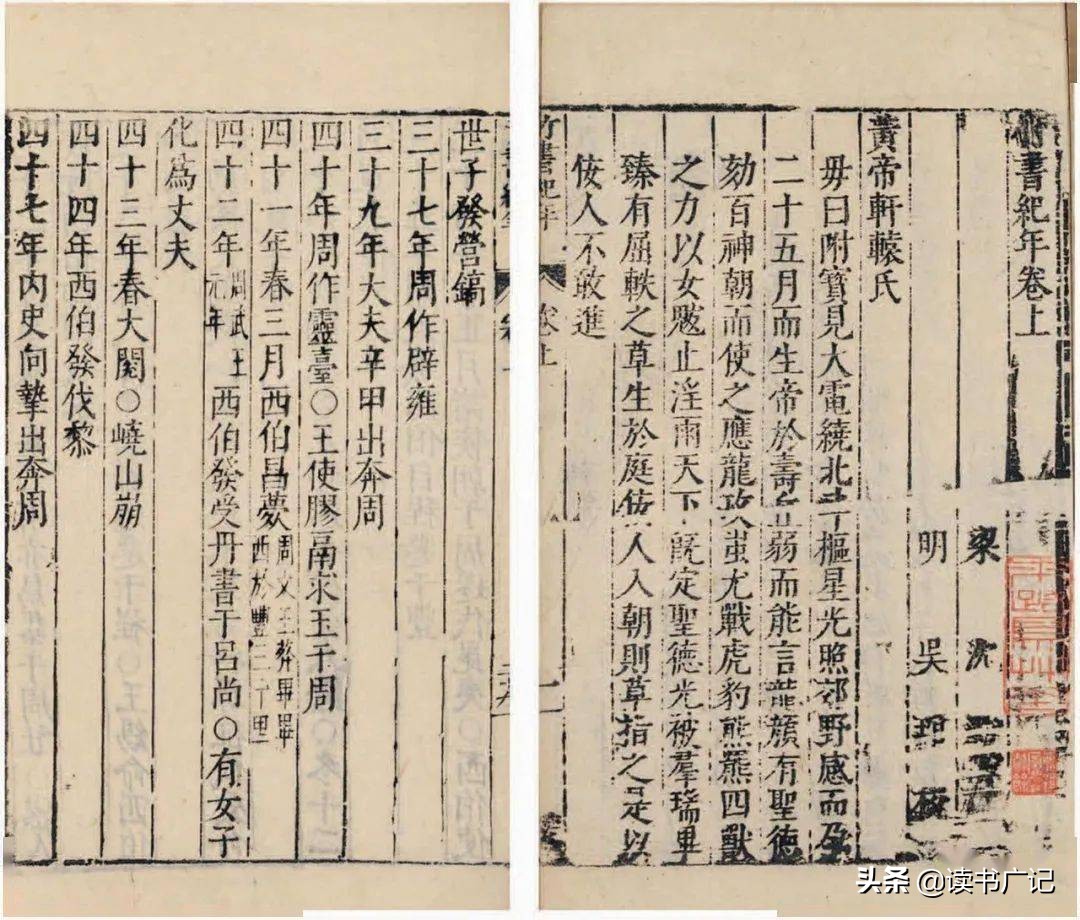 竹書紀年卷上
梁 沈
明 吳
黃帝軒轅氏
母曰附寶見大電繞北斗樞星光照郊野感而孕
二十五月而生帝於壽丘弱而能言龍顏有聖德
劾百神朝而使之應龍攻蚩尤戰虎豹熊羆四獸
之力以女魃止淫雨天下既定聖德光被羣瑞畢
臻有屈軼之草生於庭佞人入朝則草指之是以
佞人不敢進
竹書紀年 卷上 一
世子發營鎬
三十七年周作辟雍
三十九年大夫辛甲出奔周
四十年周作靈臺○王使膠鬲求玉于周
四十一年春三月西伯昌薨周文王葬畢畢西於豐三十里
四十二年周武王元年西伯發受丹書于呂尚○有女子
化爲丈夫
四十三年春大閱○嶢山崩
四十四年西伯發伐黎
四十七年內史向摯出奔周
头条 @读书广记